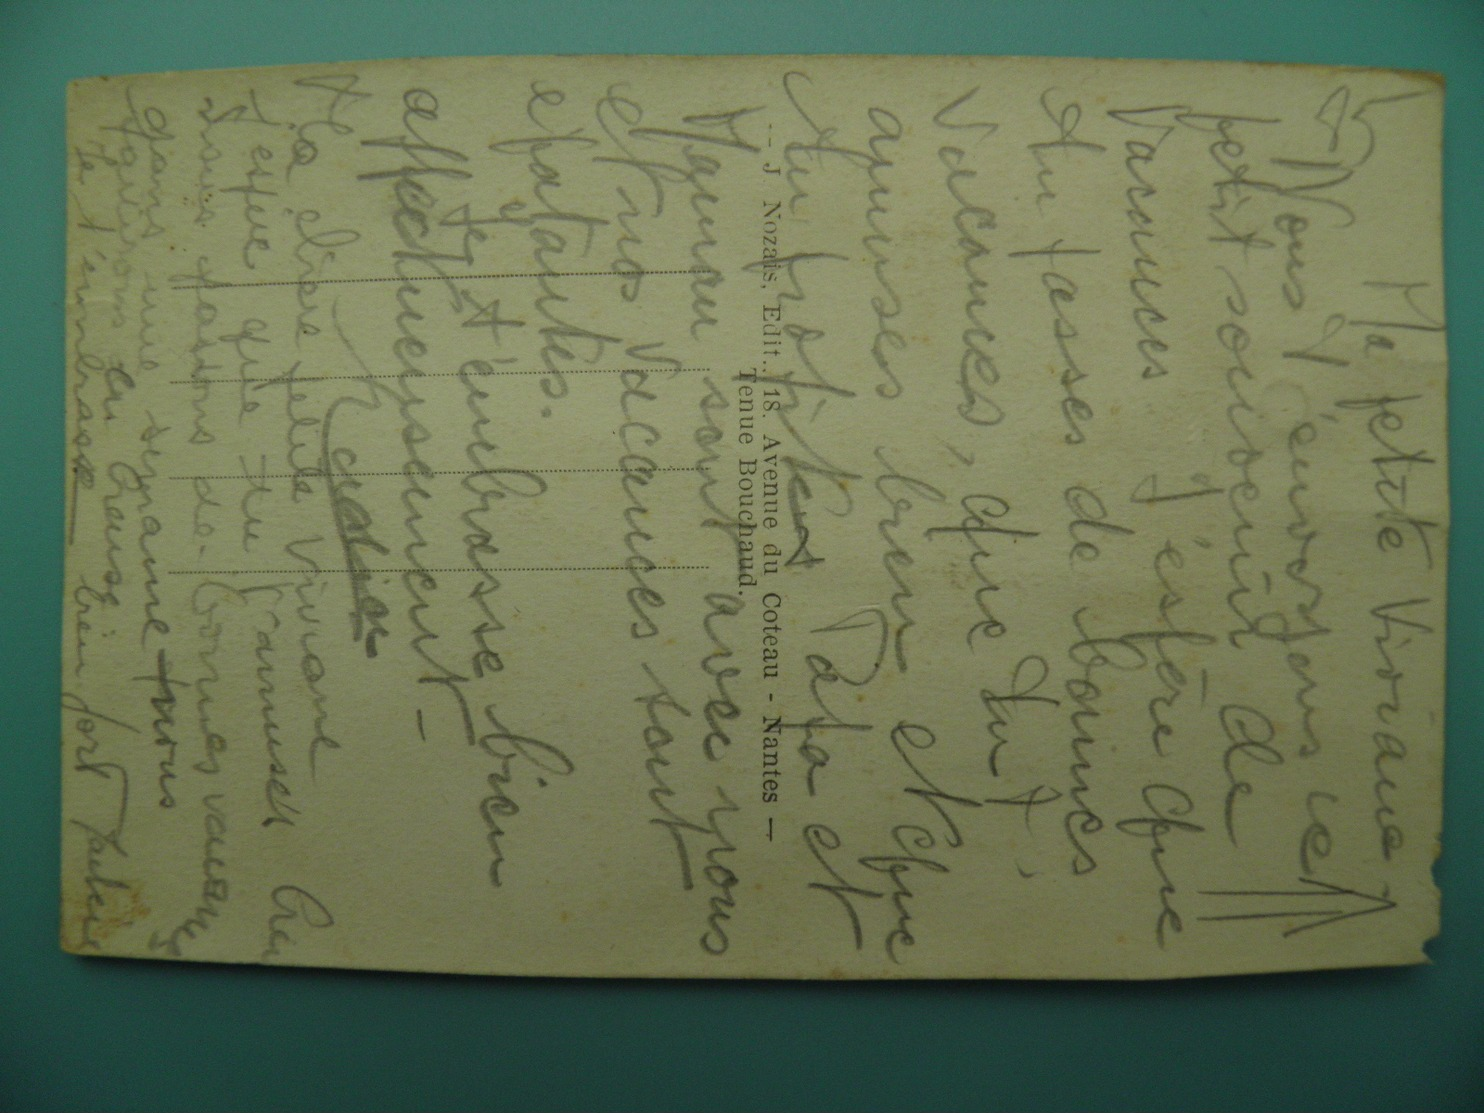 Ma petite Viviane
Nous t'envoyons ce
petit souvenir de
vacances j'espère que
tu passes de bonnes
vacances, que tu t'
amuses bien et que
tu profites Papa et
Maman sont avec nous
et nos vacances sont
épatantes.
Je t'embrasse bien
affectueusement -
Ma chère petite Viviane
J'espère que tu t'amuses bien
nous passons de bonnes vacances
dans une semaine nous
en Creuse
Je t'embrasse bien fort
-- J. Nozais, Edit., 18, Avenue du Coteau - Nantes --
Tenue Bouchaud.